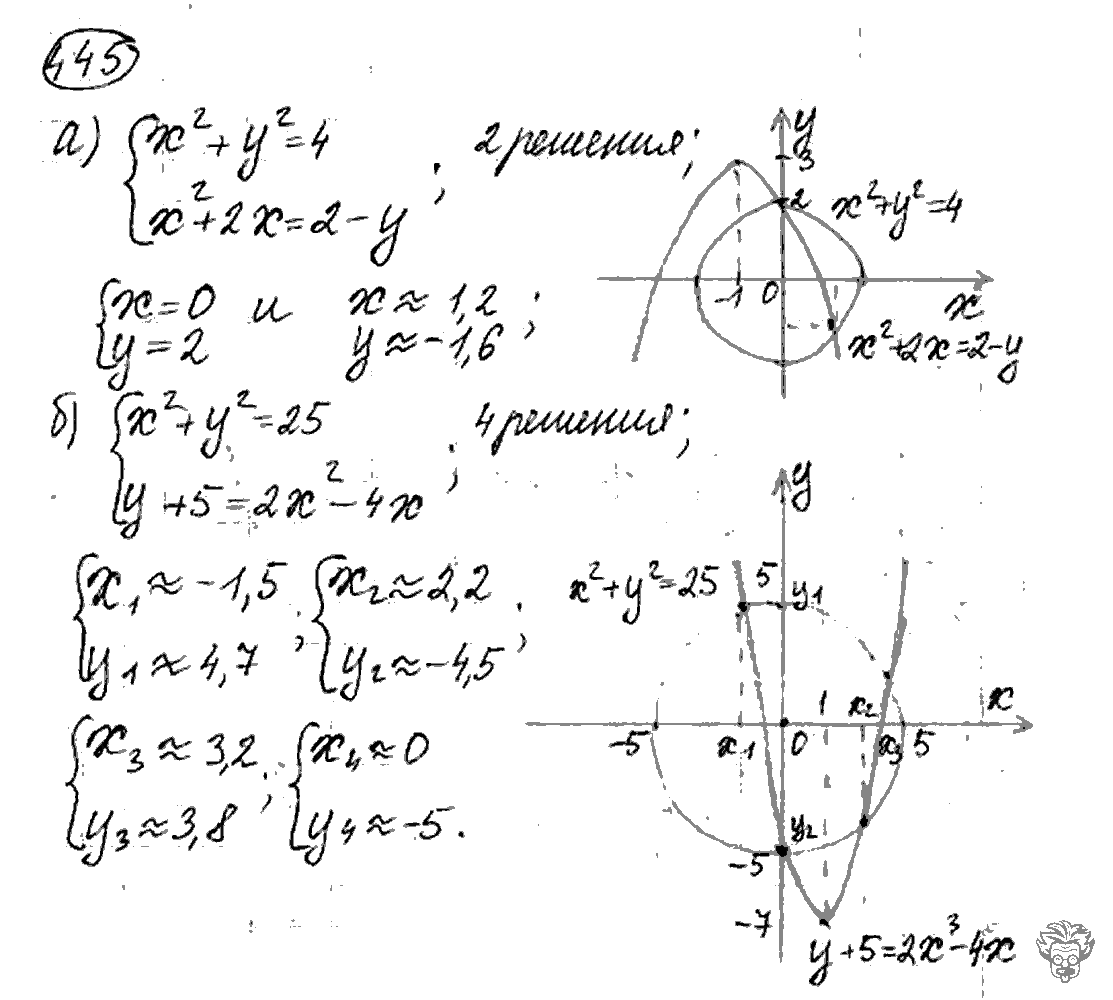 445
а) { x² + y² = 4
x² + 2x = 2 - y ; 2 решения;
{ x = 0 и x ≈ 1,2
y = 2 y ≈ -1,6 ;
y
3
2
x² + y² = 4
-1 0
x
x² + 2x = 2 - y
б) { x² + y² = 25
y + 5 = 2x² - 4x ; 4 решения;
{ x₁ ≈ -1,5
y₁ ≈ 4,7 ;
{ x₂ ≈ 2,2
y₂ ≈ -4,5 ;
{ x₃ ≈ 3,2
y₃ ≈ 3,8 ;
{ x₄ ≈ 0
y₄ ≈ -5 .
y
x² + y² = 25 5 y₁
1 x₂ x
-5 x₁ 0 x₃ 5
y₂
-5
-7
y + 5 = 2x³ - 4x